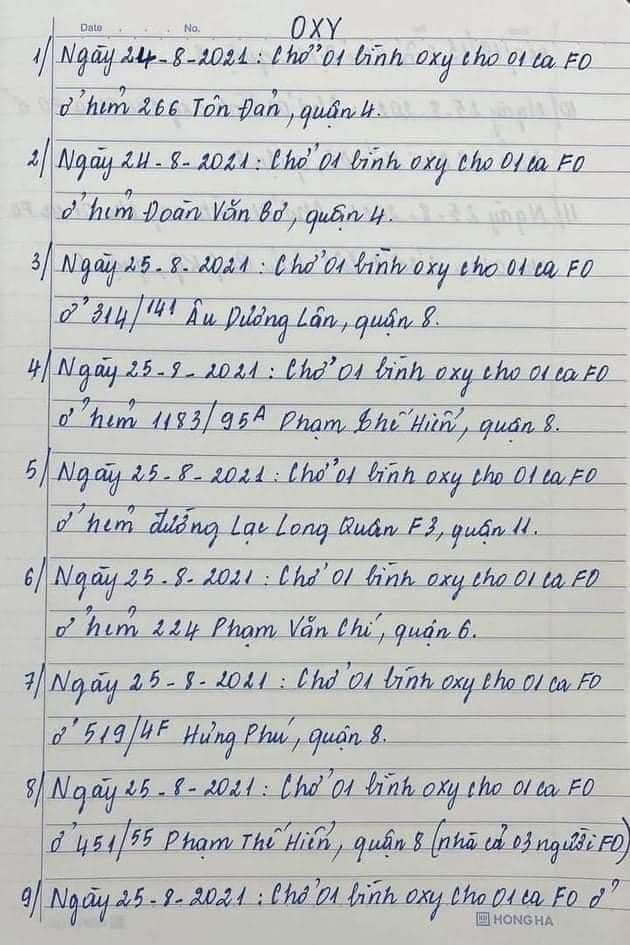 Date No. OXY
1/ Ngày 24-8-2021: Chở 01 bình oxy cho 01 ca F0
ở hẻm 266 Tôn Đản, quận 4.
2/ Ngày 24-8-2021: Chở 01 bình oxy cho 01 ca F0
ở hẻm Đoàn Văn Bơ, quận 4.
3/ Ngày 25-8-2021: Chở 01 bình oxy cho 01 ca F0
ở 314/141 Âu Dương Lân, quận 8.
4/ Ngày 25-8-2021: Chở 01 bình oxy cho 01 ca F0
ở hẻm 1183/95A Phạm Thế Hiển, quận 8.
5/ Ngày 25-8-2021: Chở 01 bình oxy cho 01 ca F0
ở hẻm đường Lạc Long Quân F3, quận 11.
6/ Ngày 25-8-2021: Chở 01 bình oxy cho 01 ca F0
ở hẻm 224 Phạm Văn Chí, quận 6.
7/ Ngày 25-8-2021: Chở 01 bình oxy cho 01 ca F0
ở 519/4F Hưng Phú, quận 8.
8/ Ngày 25-8-2021: Chở 01 bình oxy cho 01 ca F0
ở 451/55 Phạm Thế Hiển, quận 8 (nhà cả 03 người F0)
9/ Ngày 25-8-2021: Chở 01 bình oxy cho 01 ca F0 ở
HONG HA